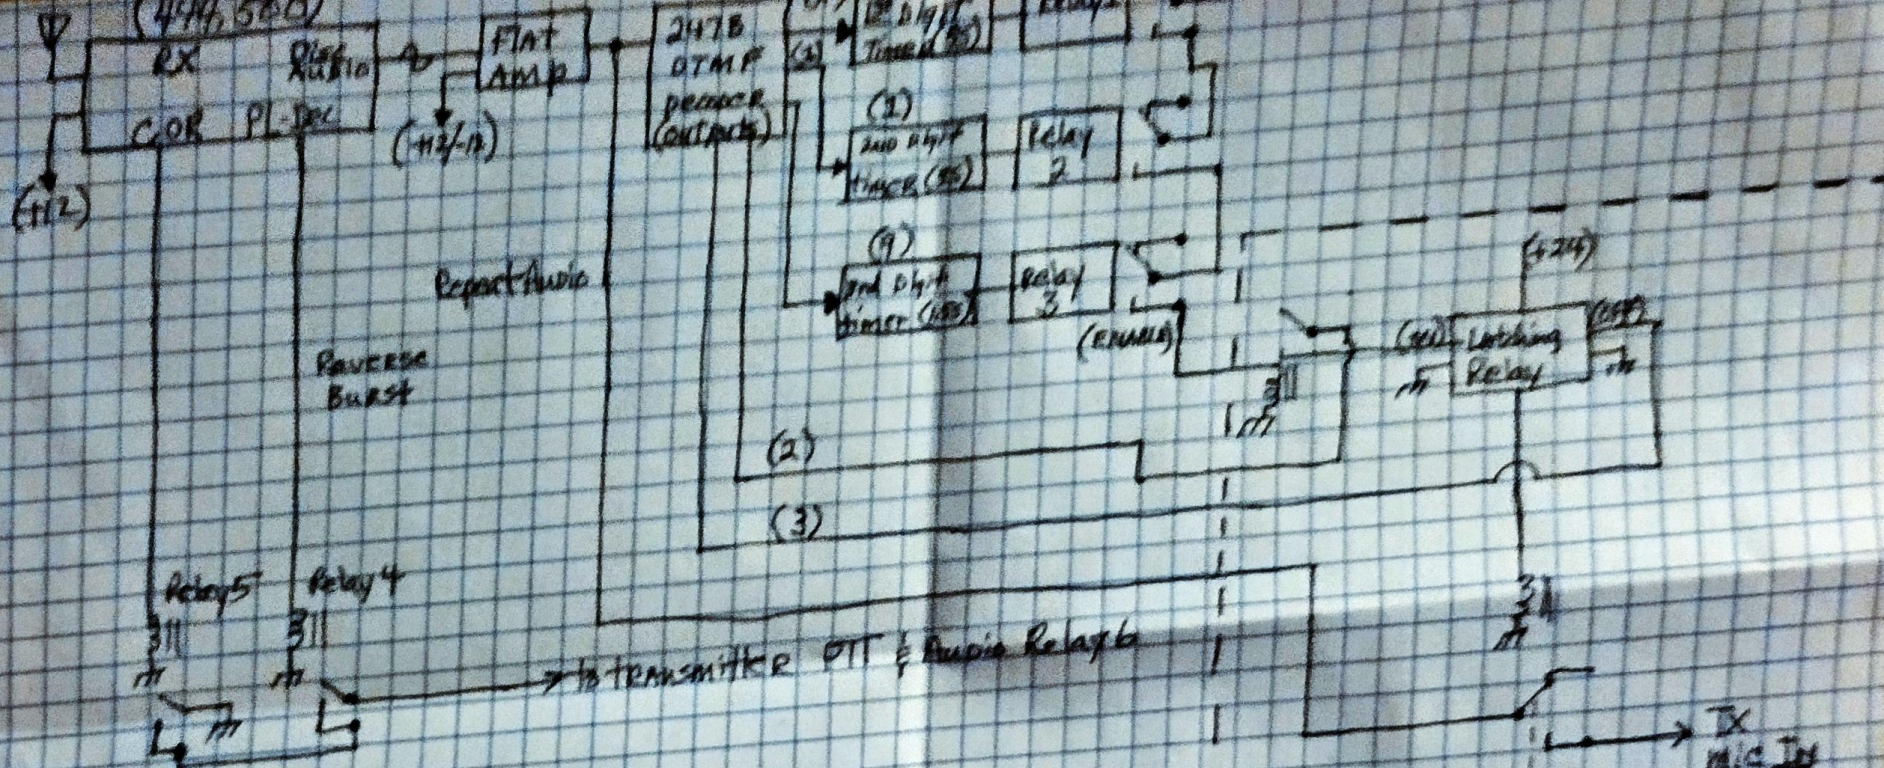 RX
Audio
COR
PL-Dec
(+12)
Flat
AMP
(+12/-12)
247B
DTMF
Decoder
(outputs)
Timer
(1)
2nd Digit
timer
Relay
2
(9)
3rd Digit
timer
Relay
3
(Enable)
(+24)
Latching
Relay
Repeat Audio
Reverse
Burst
(2)
(3)
Relay 5
Relay 4
to transmitter PTT & Audio Relay 6
TX
Mic In